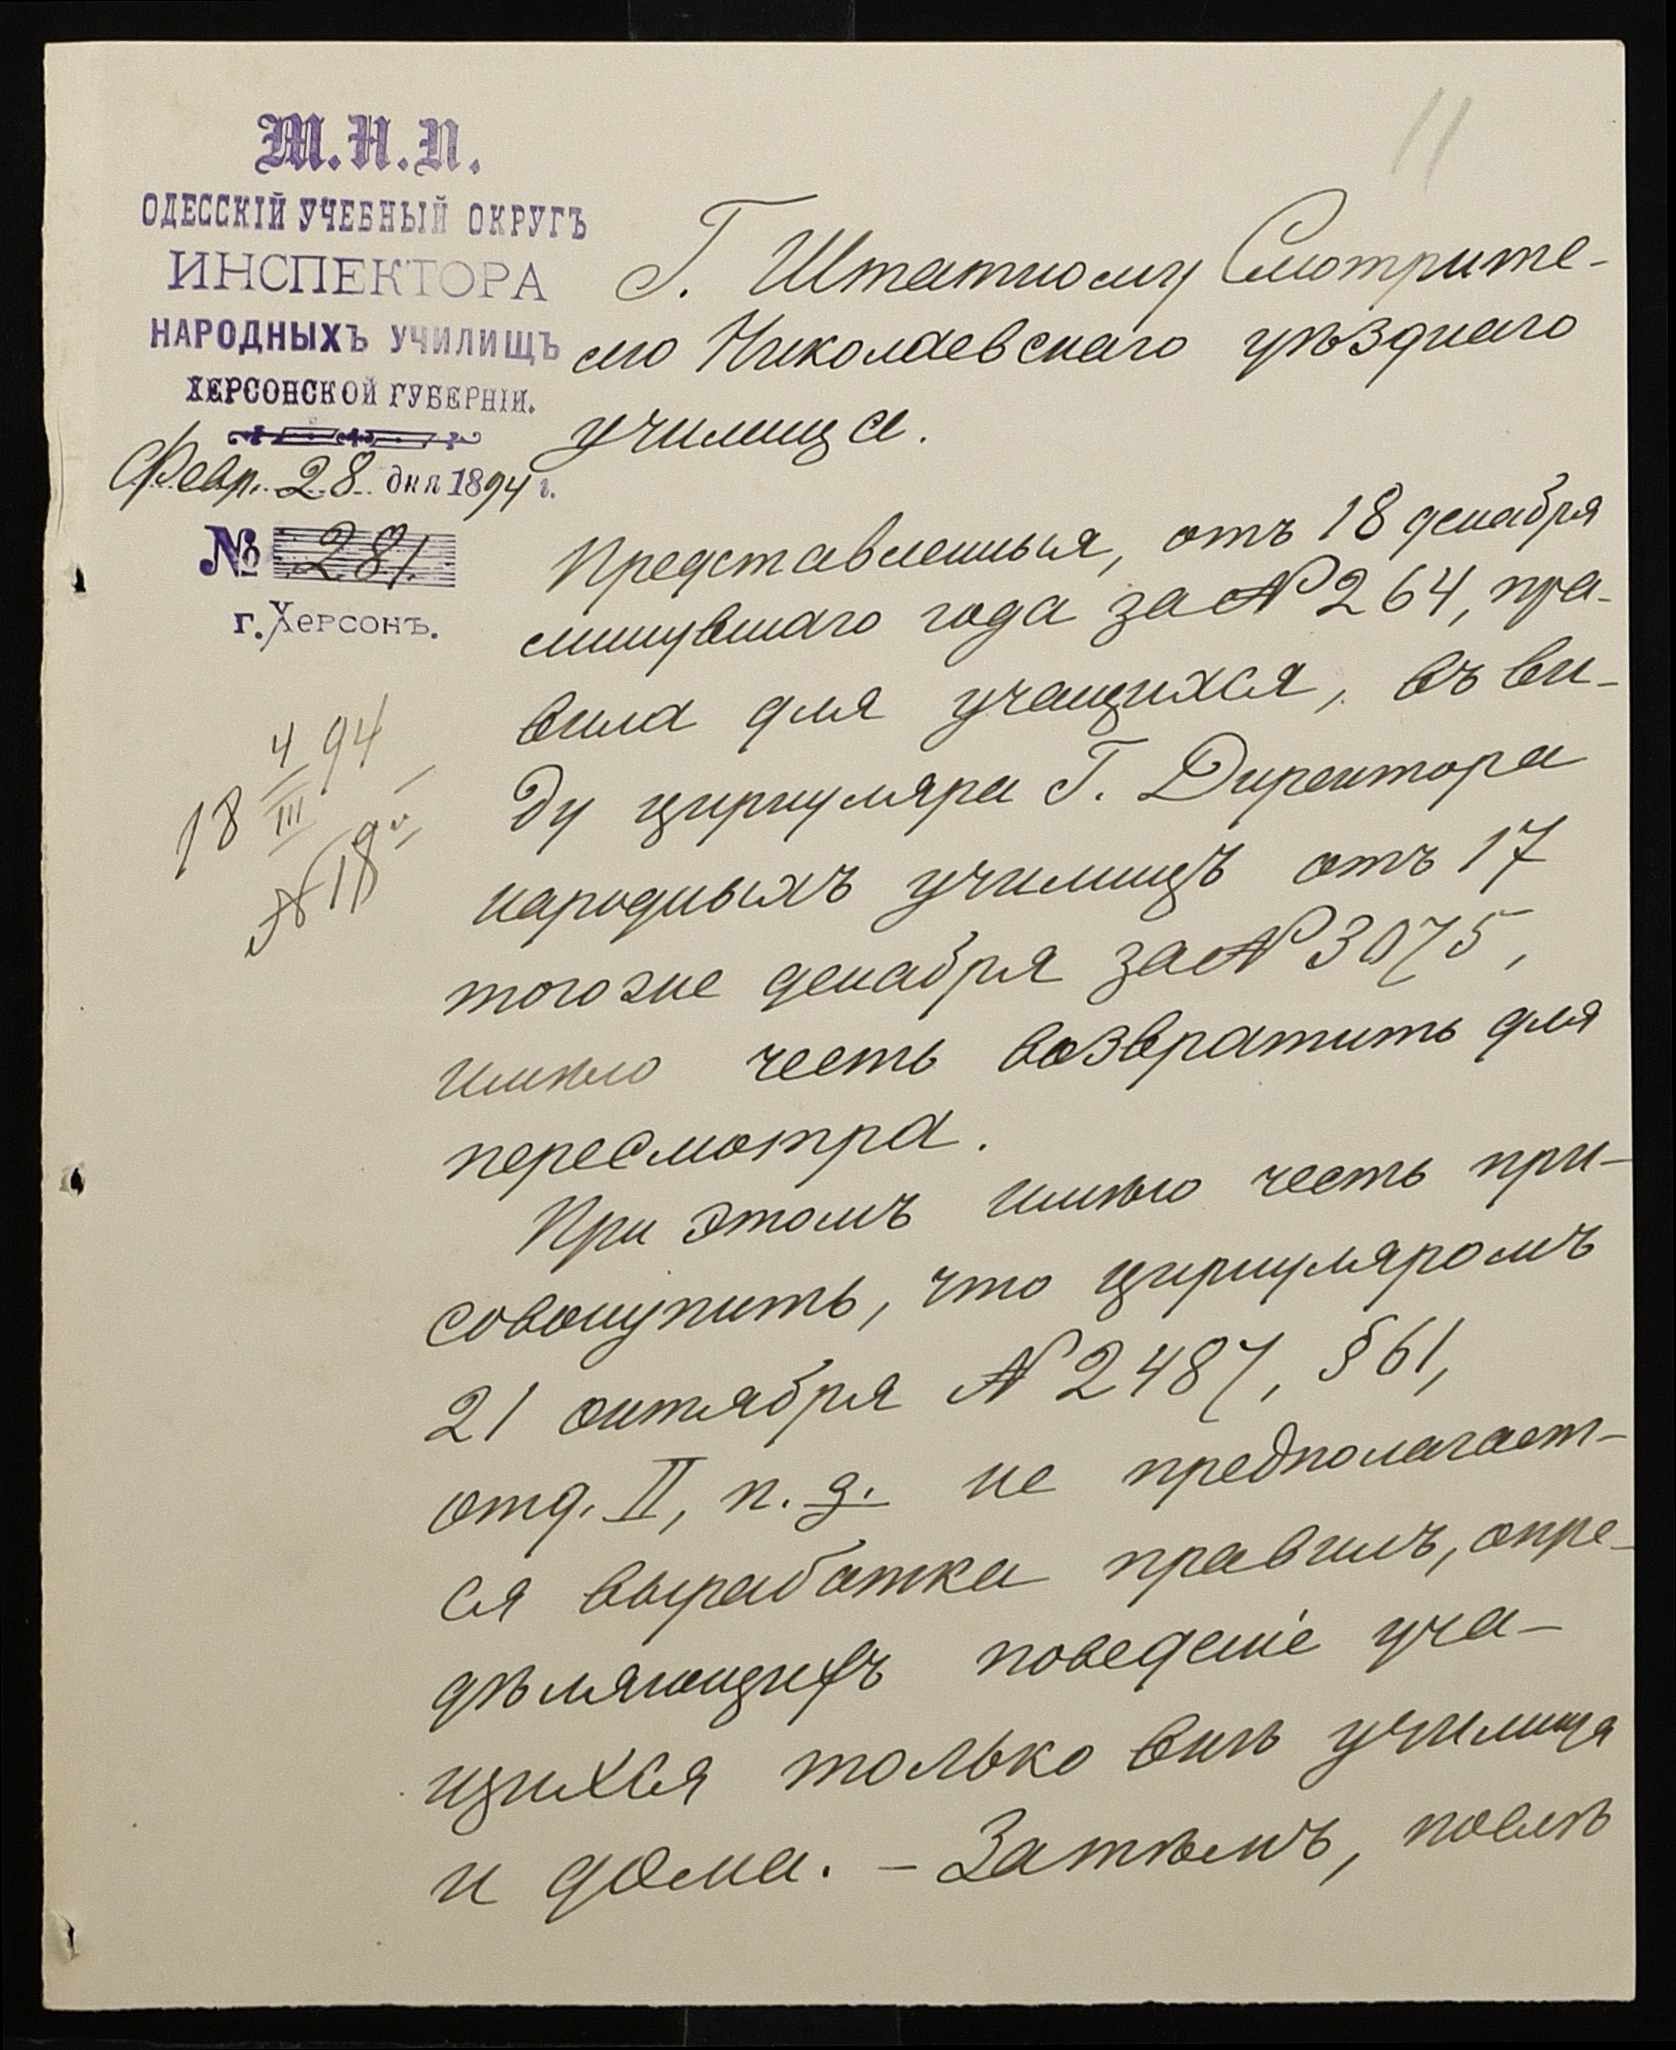 11
М.Н.П.
ОДЕССКІЙ УЧЕБНЫЙ ОКРУГЪ
ИНСПЕКТОРА
НАРОДНЫХЪ УЧИЛИЩЪ
ХЕРСОНСКОЙ ГУБЕРНІИ.
Февр. 28 дня 1894 г.
№ 281.
г. Херсонъ.
18 4/III 94
№ 18
Г. Штатному Смотрите-
лю Николаевскаго уѣзднаго
училища.
Представленныя, отъ 18 декабря
минувшаго года за № 264, пра-
вила для учащихся, въ ви-
ду циркуляра Г. Директора
народныхъ училищъ отъ 17
того же декабря за № 3075,
имѣю честь возвратить для
пересмотра.
При этомъ имѣю честь при-
совокупить, что циркуляромъ
21 октября № 2487, § 61,
отд. II, п. д. не предполагает-
ся выработка правилъ, опре-
дѣляющихъ поведеніе уча-
щихся только внѣ училища
и дома. – Затѣмъ, послѣ